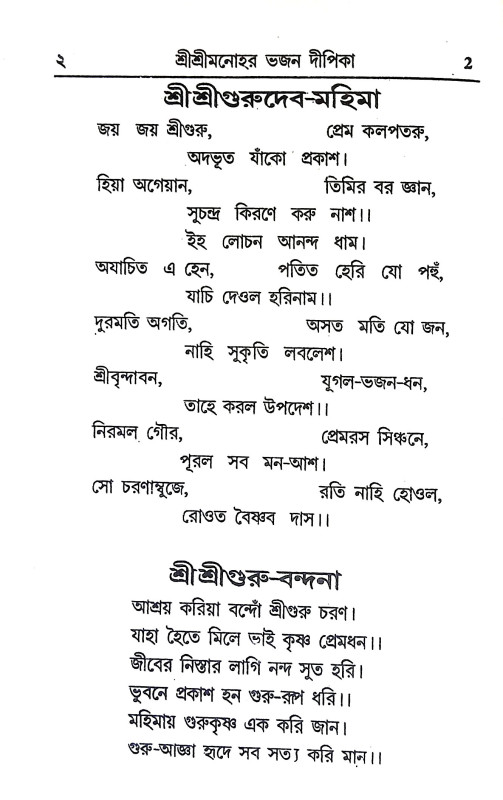 ২ শ্রীশ্রীমনোহর ভজন দীপিকা 2
শ্রীশ্রীগুরুদেব-মহিমা
জয় জয় শ্রীগুরু, প্রেম কলপতরু,
অদভূত যাঁকো প্রকাশ।
হিয়া অগেয়ান, তিমির বর জ্ঞান,
সূচন্দ্র কিরণে করু নাশ।।
ইহ লোচন আনন্দ ধাম।
অযাচিত এ হেন, পতিত হেরি যো পহুঁ,
যাচি দেওল হরিনাম।।
দুরমতি অগতি, অসত মতি যো জন,
নাহি সুকৃতি লবলেশ।
শ্রীবৃন্দাবন, যুগল-ভজন-ধন,
তাহে করল উপদেশ।।
নিরমল গৌর, প্রেমরস সিঞ্চনে,
পূরল সব মন-আশ।
সো চরণাম্বুজে, রতি নাহি হোওল,
রোওত বৈষ্ণব দাস।।
শ্রীশ্রীগুরু-বন্দনা
আশ্রয় করিয়া বন্দোঁ শ্রীগুরু চরণ।
যাহা হৈতে মিলে ভাই কৃষ্ণ প্রেমধন।।
জীবের নিস্তার লাগি নন্দ সূত হরি।
ভুবনে প্রকাশ হন গুরু-রূপ ধরি।।
মহিমায় গুরুকৃষ্ণ এক করি জান।
গুরু-আজ্ঞা হৃদে সব সত্য করি মান।।